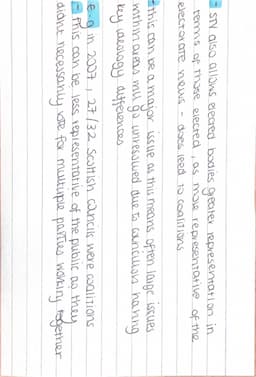 - STV also allows elected bodies greater representation in
terms of those elected, as more representative of the
electorate views - does lead to coalitions
- this can be a major issue as this means often large issues
within areas will go unresolved due to councillors having
key ideology differences
E.g in 2007, 27/32 Scottish councils were coalitions
- This can be less representative of the public as they
didn't necessarily vote for multiple parties working together